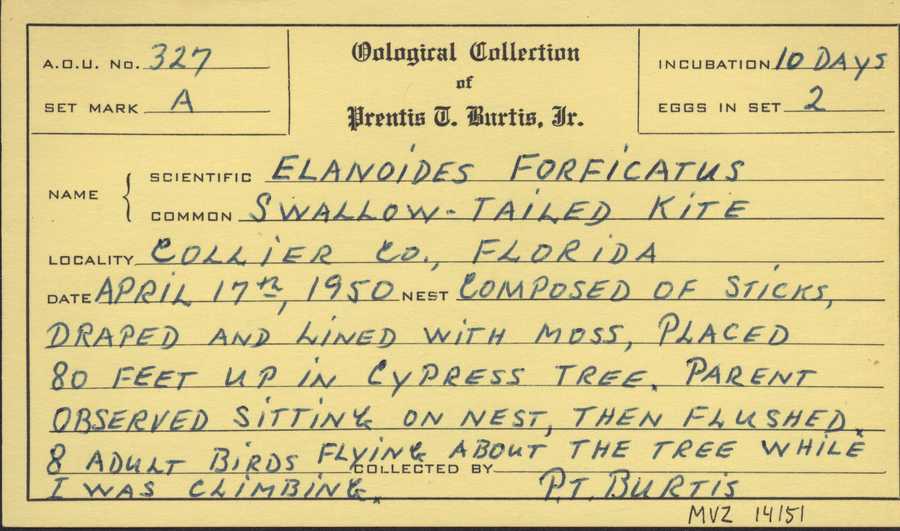 A.O.U. No. 327
SET MARK A
Oological Collection
of
Prentis T. Burtis, Jr.
INCUBATION 10 DAYS
EGGS IN SET 2
NAME
SCIENTIFIC ELANOIDES FORFICATUS
COMMON SWALLOW-TAILED KITE
LOCALITY COLLIER CO., FLORIDA
DATE APRIL 17th, 1950 NEST COMPOSED OF STICKS,
DRAPED AND LINED WITH MOSS, PLACED
80 FEET UP IN CYPRESS TREE. PARENT
OBSERVED SITTING ON NEST, THEN FLUSHED.
8 ADULT BIRDS FLYING ABOUT THE TREE WHILE
COLLECTED BY
I WAS CLIMBING. P.T. BURTIS
MVZ 14151